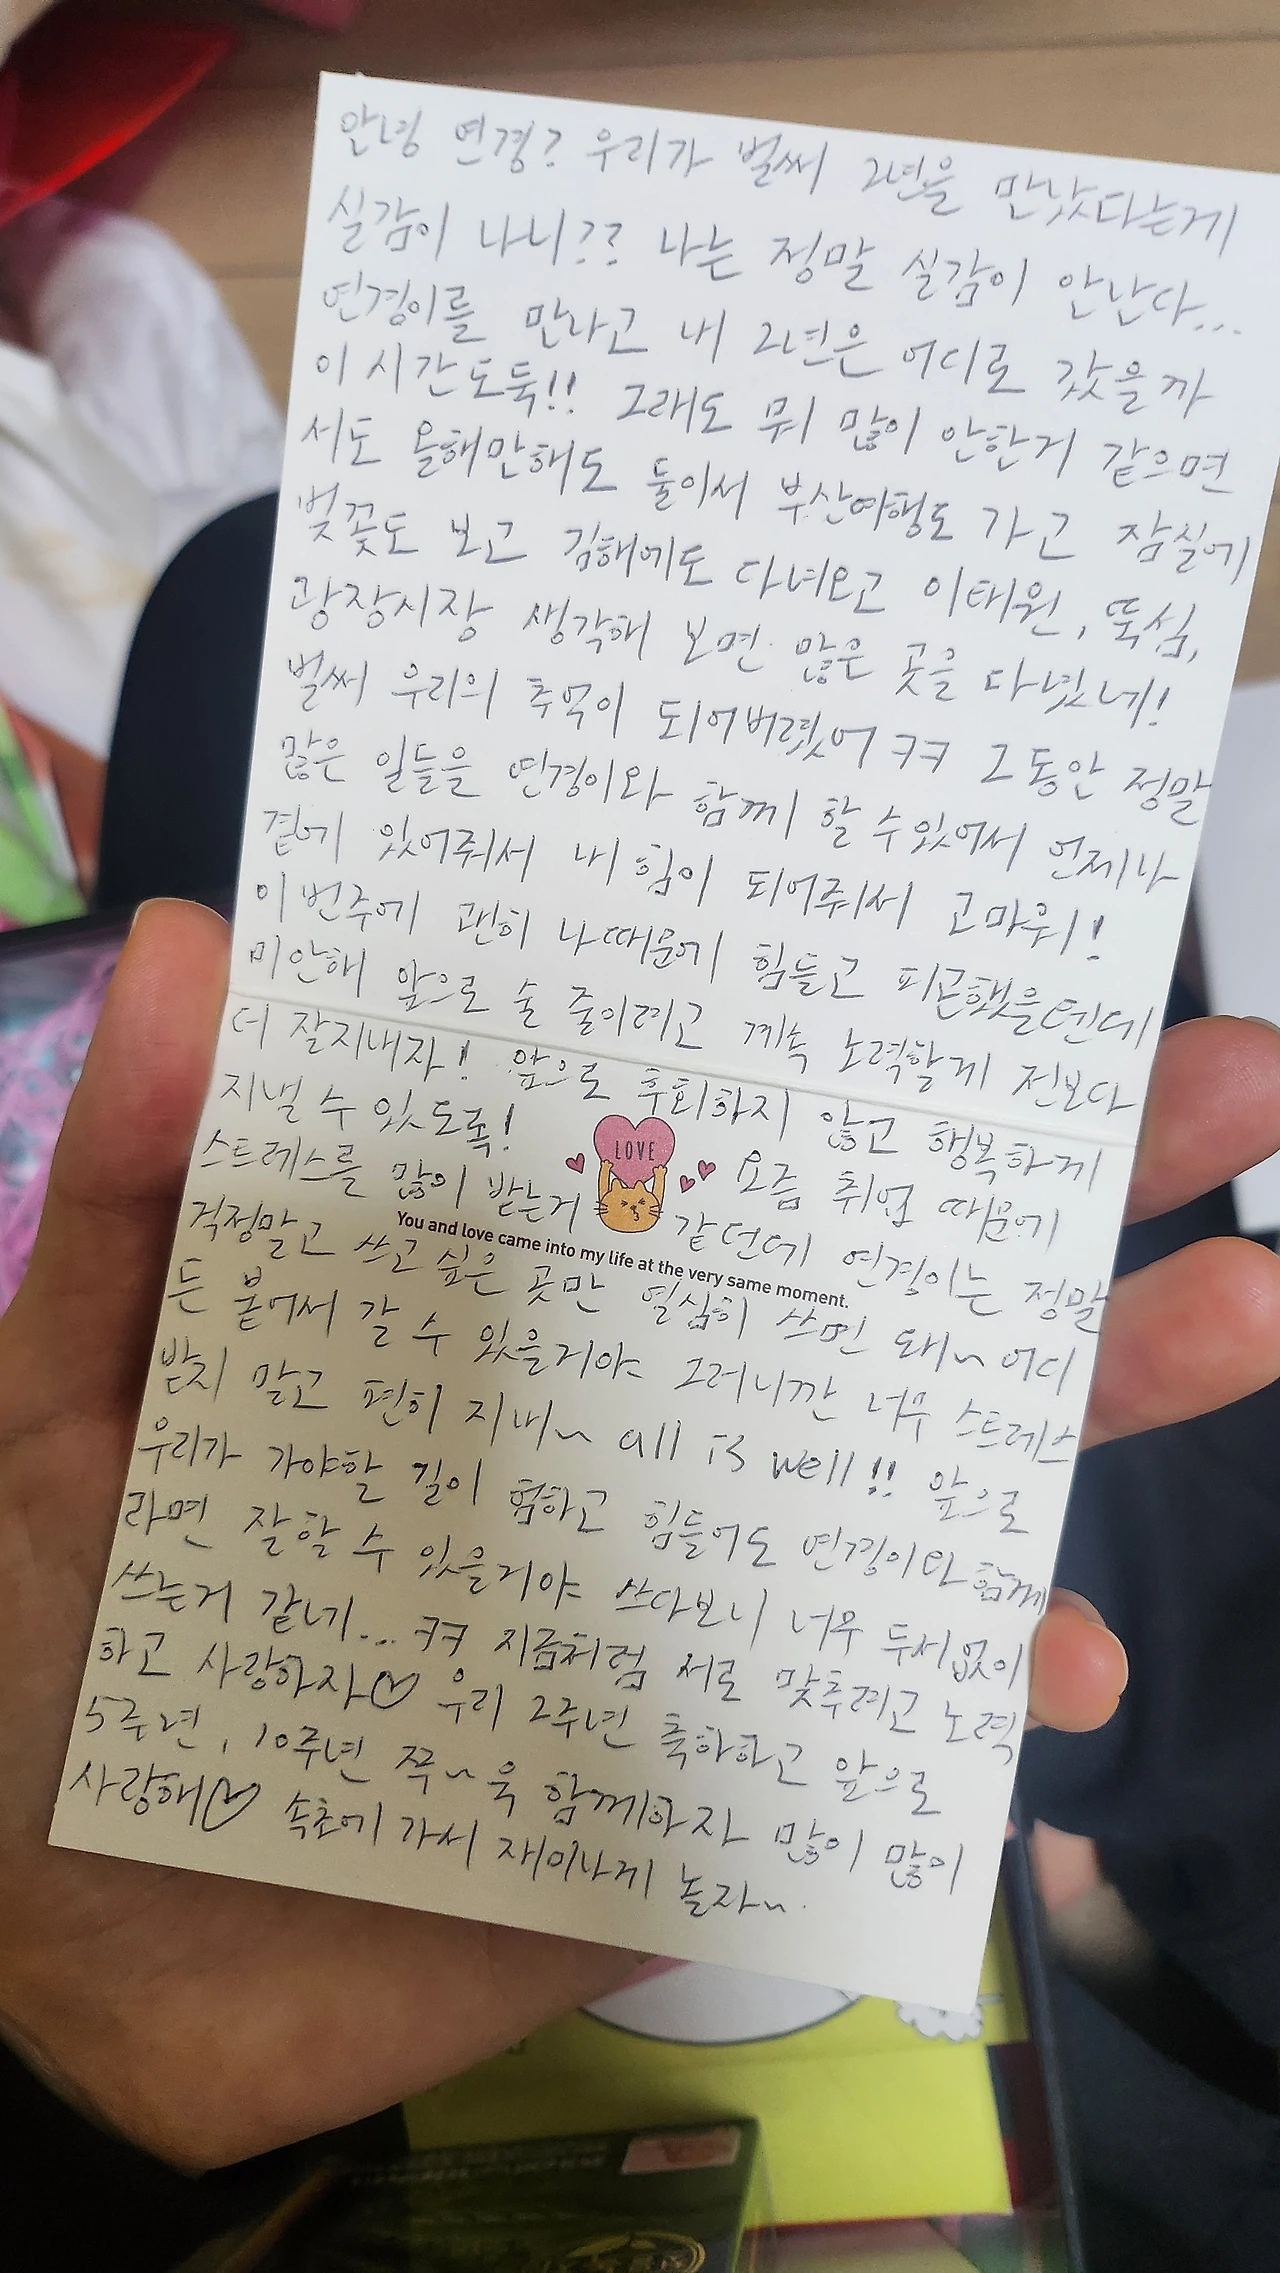 안녕 연경? 우리가 벌써 2년을 만났다는게
실감이 나니?? 나는 정말 실감이 안난다...
연경이를 만나고 내 2년은 어디로 갔을까
이 시간도둑!! 그래도 뭐 많이 안한거 같으면
서도 올해만해도 둘이서 부산여행도 가고 잠실에
벚꽃도 보고 김해에도 다녀오고 이태원, 뚝섬,
광장시장 생각해 보면 많은 곳을 다녔네!
벌써 우리의 추억이 되어버렸어 ㅋㅋ 그동안 정말
많은 일들을 연경이와 함께 할 수 있어서 언제나
곁에 있어줘서 내 힘이 되어줘서 고마워!
이번주에 괜히 나때문에 힘들고 피곤했을텐데
미안해 앞으로 술 줄이려고 계속 노력할게 전보다
더 잘지내자! 앞으로 후회하지 않고 행복하게
지낼 수 있도록! 요즘 취업 때문에
LOVE
스트레스를 많이 받는거 같던데 연경이는 정말
You and love came into my life at the very same moment.
걱정말고 쓰고 싶은 곳만 열심히 쓰면 돼~ 어디
든 붙어서 갈 수 있을거야 그러니깐 너무 스트레스
받지 말고 편히 지내~ all is well!! 앞으로
우리가 가야할 길이 험하고 힘들어도 연경이와 함께
라면 잘할 수 있을거야 쓰다보니 너무 두서없이
쓰는거 같네... ㅋㅋ 지금처럼 서로 맞추려고 노력
하고 사랑하자♡ 우리 2주년 축하하고 앞으로
5주년, 10주년 쭈~욱 함께하자 많이 많이
사랑해♡ 속초에 가서 재미나게 놀자~